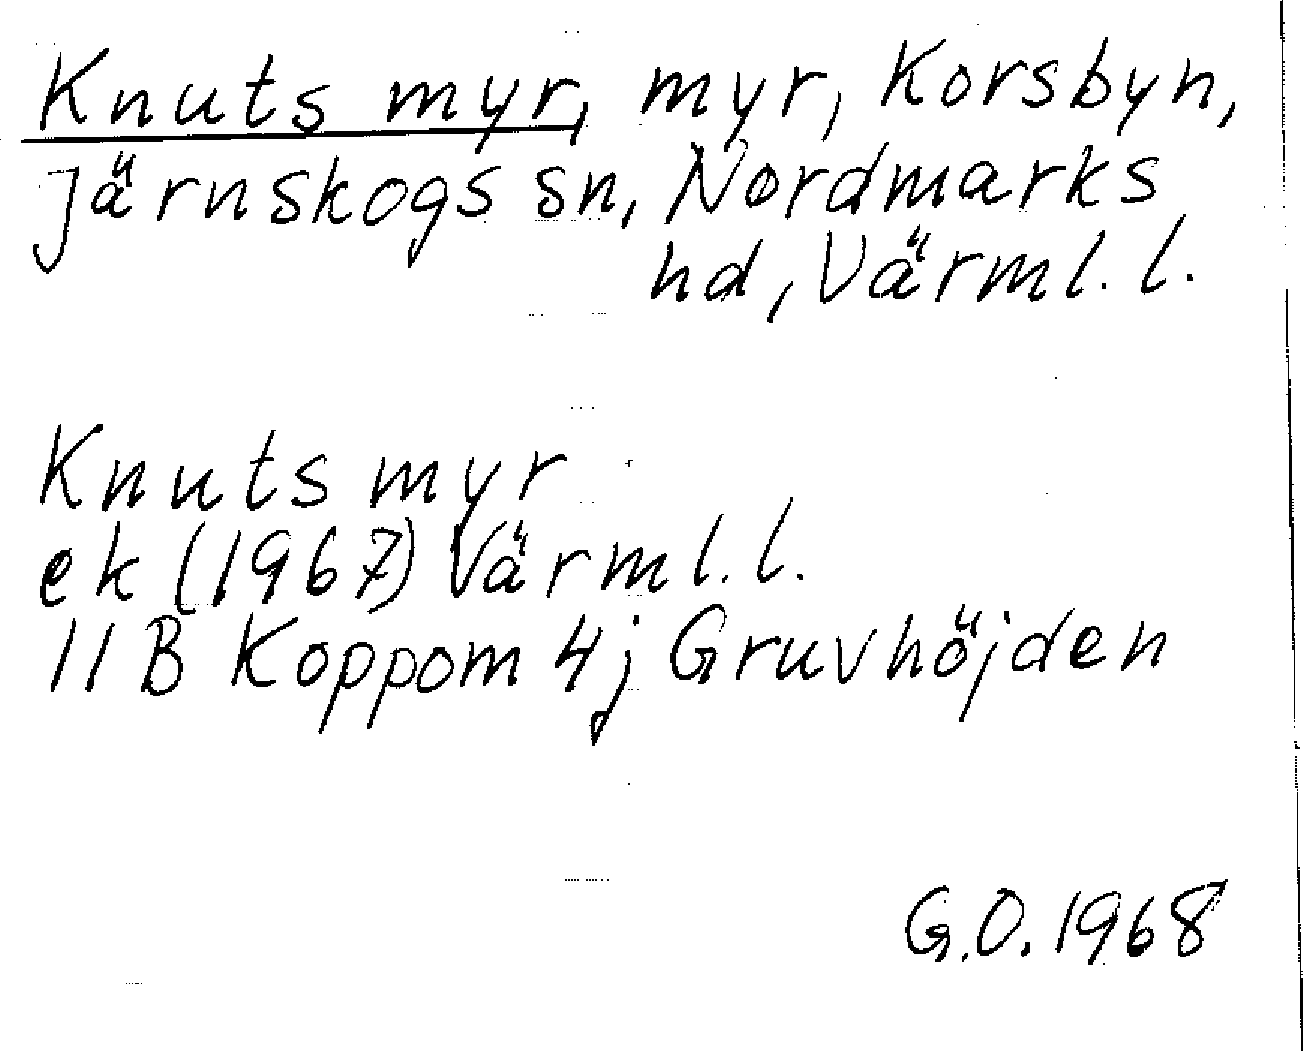 Knuts myr, myr, Korsbyn,
Järnskogs sn, Nordmarks
hd, Värml. l.
Knuts myr
ek (1967) Värml. l.
11B Koppom 4j Gruvhöjden
G.O. 1968